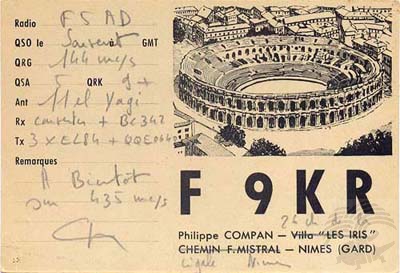 Radio F5AD
QSO le Souvent GMT
QRG 144 mc/s
QSA 5 QRK 9+
Ant 11 el Yagi
Rx + BC342
Tx 3 x EL84 + QQE0640
Remarques
A Bientôt
sur 435 mc/s
F 9KR
26 ch de la
Philippe COMPAN – Villa "LES IRIS"
CHEMIN F.MISTRAL – NIMES (GARD)
Cigale Nimes